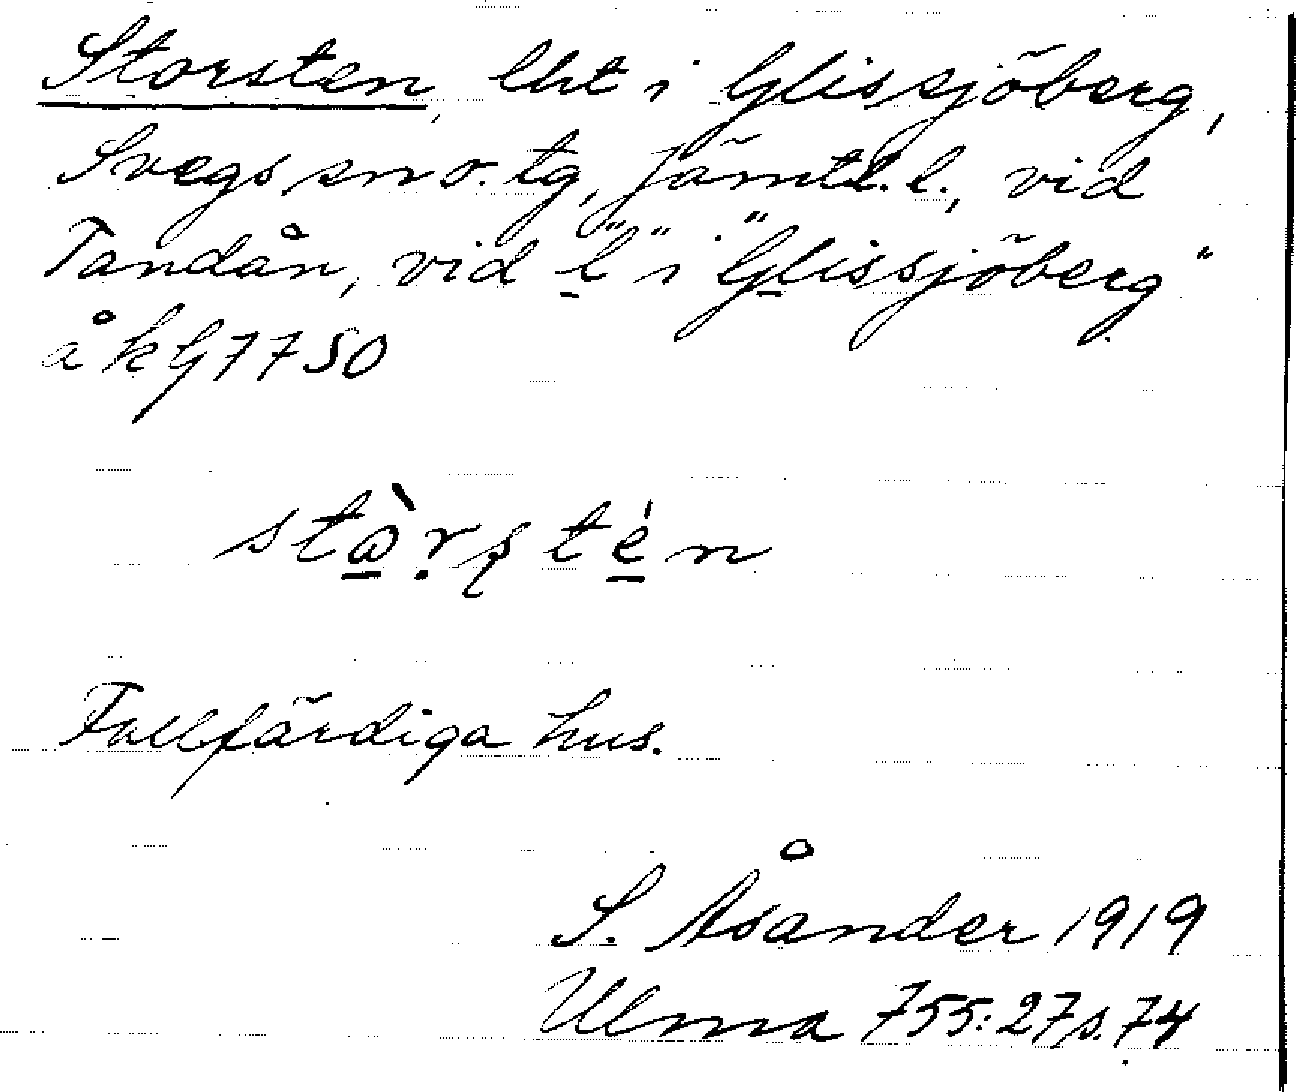 Storsten, lht i Glissjöberg,
Svegs sn o. tg, Jämtl. l., vid
Tandån, vid "l" i "Glissjöberg"
å kG7750
Fallfärdiga hus.
S. Åsander 1919
Ulma 755:27 s. 74